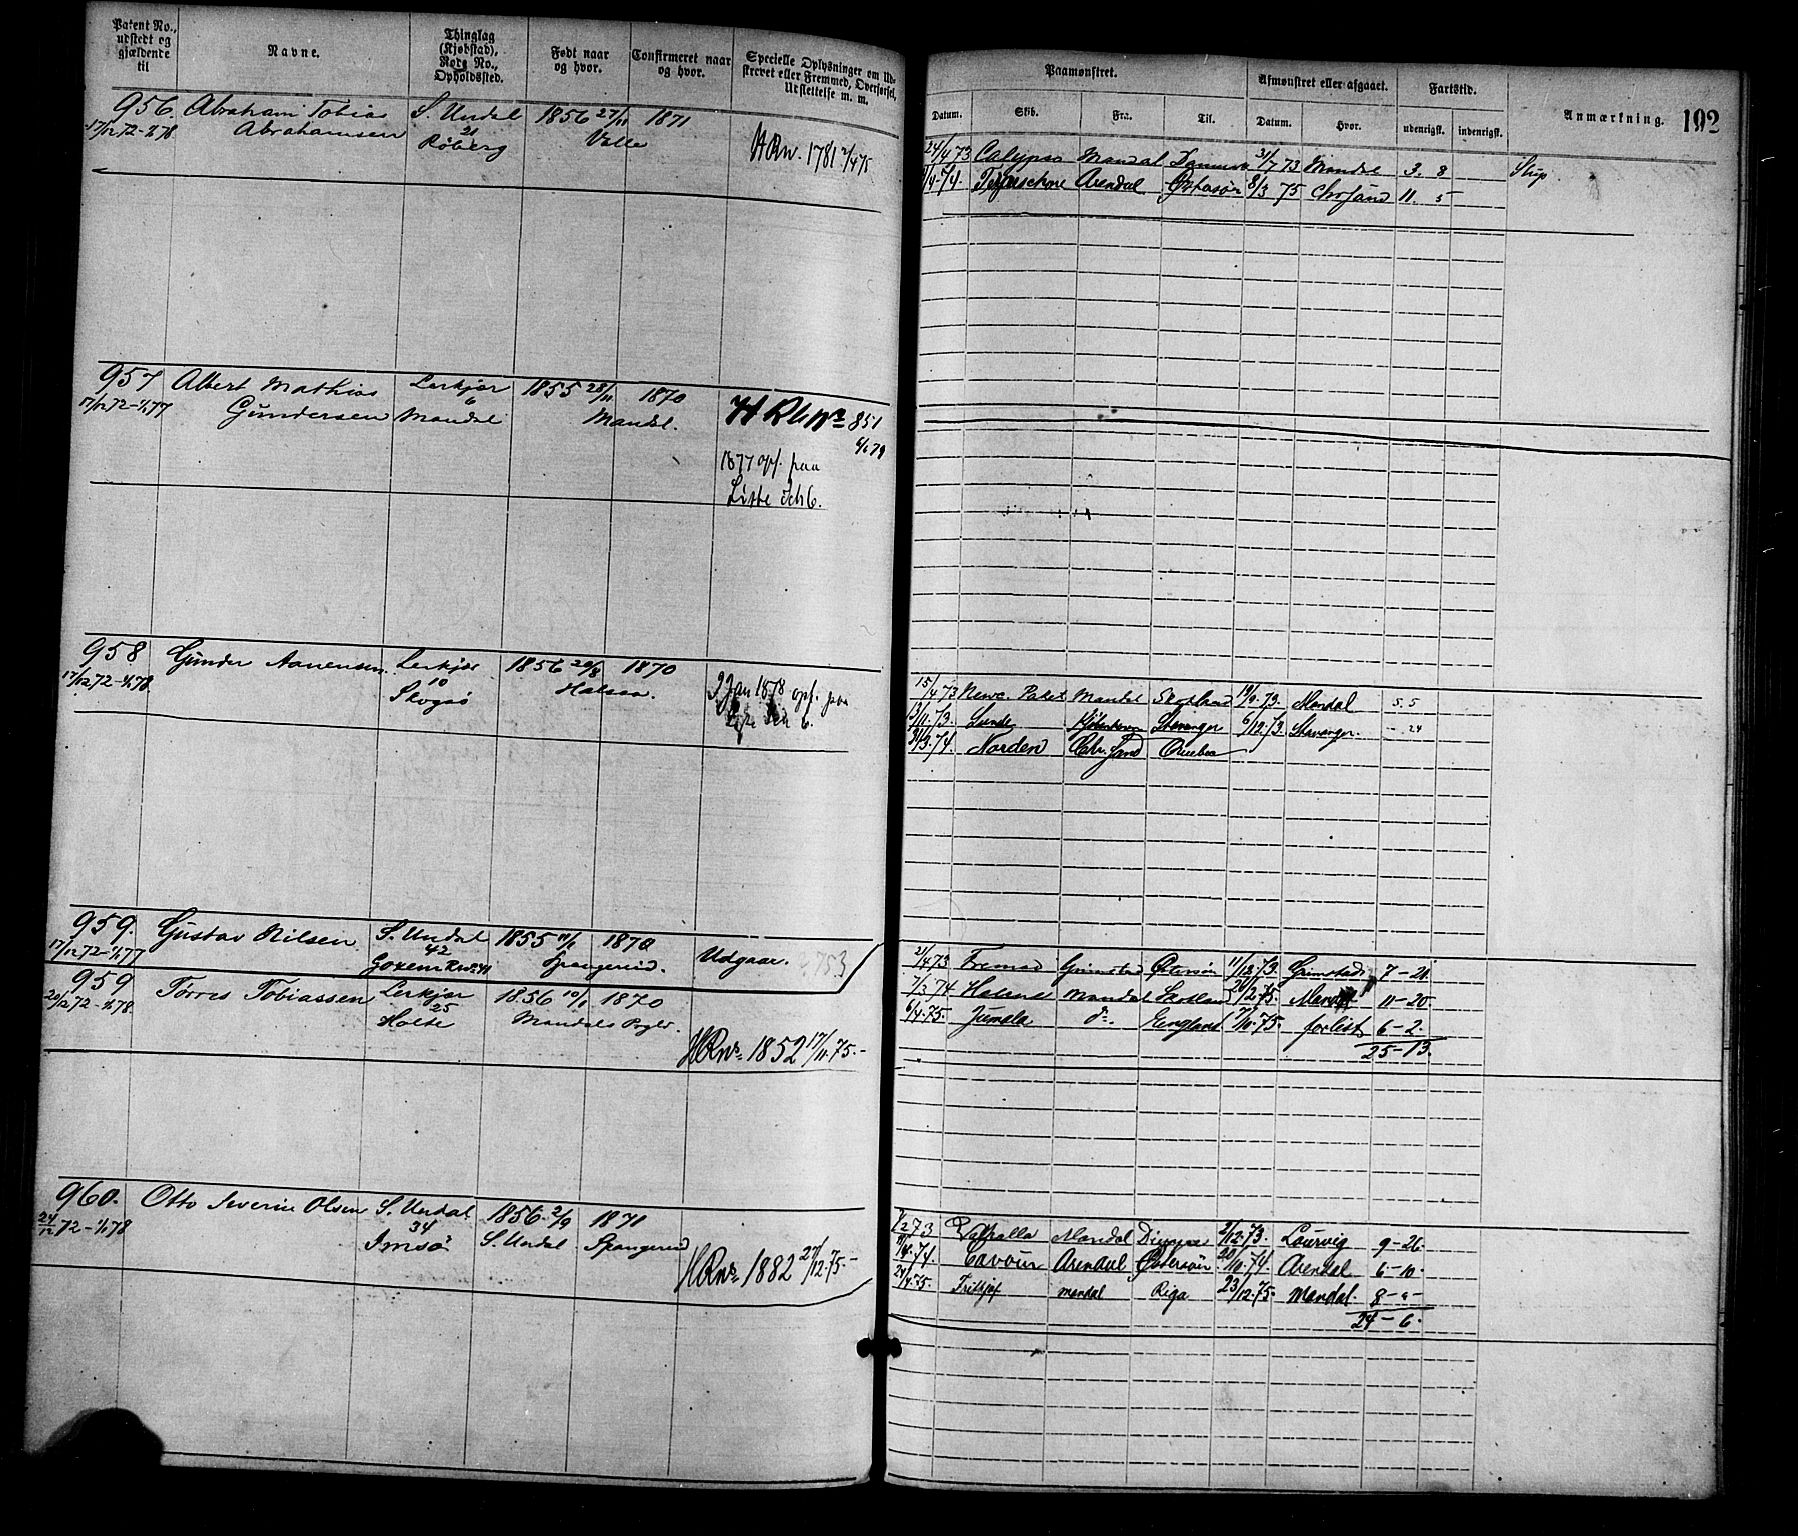 Patent No., udstedt og gjældende til
Navne.
Thinglag (Kjøbstad), Rode No., Opholdssted.
Født naar og hvor.
Confirmeret naar og hvor.
Specielle Oplysninger om Udskrevet eller Fremmed, Overførsel, Udslettelse m. m.
956. Abraham Tobias S. Undal 1856 27/11 1871
17/12 72 - 1/1 78 Abrahamsen 21 Valle
Røberg
HRN. 1781 2/4 75
957 Albert Mathias Lerkjær 1855 28/11 1870
17/12 72 - 1/1 77 Gundersen 6 Mandal Mandal.
H R No 851
1877 opf. paa
Liste
958 Gunder Aanensen Lerkjær 1856 20/8 1870
17/12 72 - 1/1 78 10 Halsaa.
Skogsø
Jan 1878 opf. paa
6.
959. Gustav Nilsen S. Undal 1855 11/1 1870 Udgaar. 753
17/12 72 - 1/1 77 42 Spangereid.
959 Tørres Tobiassen Lerkjær 1856 10/1 1870
20/12 72 - 1/1 78 25 Mandals
Holte
HRNo 1852 17/11. 75. -
960. Otto Severin Olsen S. Undal 1856. 2/9 1871
24/12 72 - 1/1 78 34 S. Undal Spangereid
Imsø
HRNo 1882 27/12. 75. -
Paamønstret.
Afmønstret eller afgaaet.
Fartstid.
Anmærkning. 192
Datum. Skib. Fra. Til. Datum. Hvor. udenrigsk. indenrigsk.
24/4 73 Calypso Mandal 31/7 73 Mandal 3. 8 Skip
Arendal Østersøn 8/3 75 Chrsand 11. 5
15/4 73 Mandal Skotland 73. Mandal 5. 5
13/11. 73. Lunde Stavanger 6/12 73. Stavanger. - 24
74. Norden Chr. Sand
21/4 73 Fremad Grimstad Østersøn 11/12 73. Grimstad 7 - 21
7/3 74 Mandal Skotland 75. Mandal 11 - 20
6/4. 75. Jumala do England 7/10. 75. forlist 6 - 2.
25 - 13.
73 Valhalla Mandal 12. 73. Lourvig 9 - 26
74. Cavour Arendal Østersøn 10. 74. Arendal 6 - 10.
24/4. 75. Frithjof Mandal Riga 23/12. 75. Mandal. 8 - -
24 - 6.